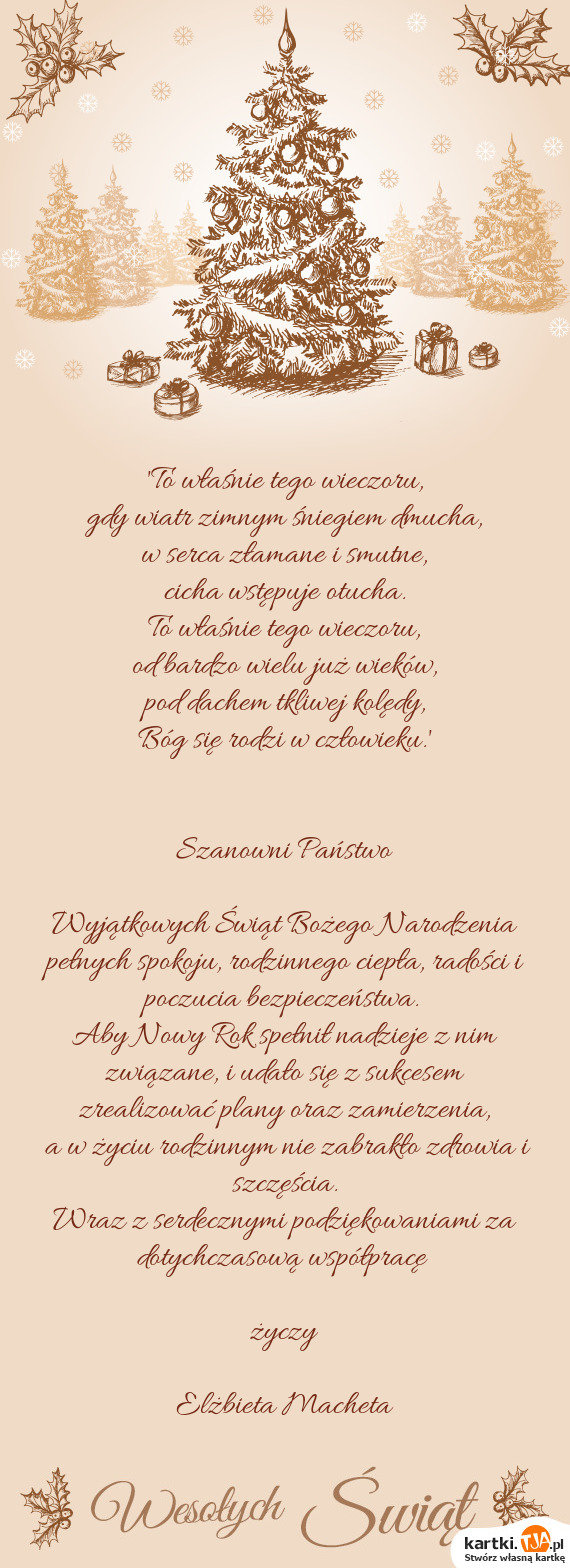 "To właśnie tego wieczoru,
gdy wiatr zimnym śniegiem dmucha,
w serca złamane i smutne,
cicha wstępuje otucha.
To właśnie tego wieczoru,
od bardzo wielu już wieków,
pod dachem tkliwej kolędy,
Bóg się rodzi w człowieku."
Szanowni Państwo
Wyjątkowych Świąt Bożego Narodzenia
pełnych spokoju, rodzinnego ciepła, radości i
poczucia bezpieczeństwa.
Aby Nowy Rok spełnił nadzieje z nim
związane, i udało się z sukcesem
zrealizować plany oraz zamierzenia,
a w życiu rodzinnym nie zabrakło zdrowia i
szczęścia.
Wraz z serdecznymi podziękowaniami za
dotychczasową współpracę
życzy
Elżbieta Macheta
Wesołych Świąt
kartki.TJA.pl
Stwórz własną kartkę